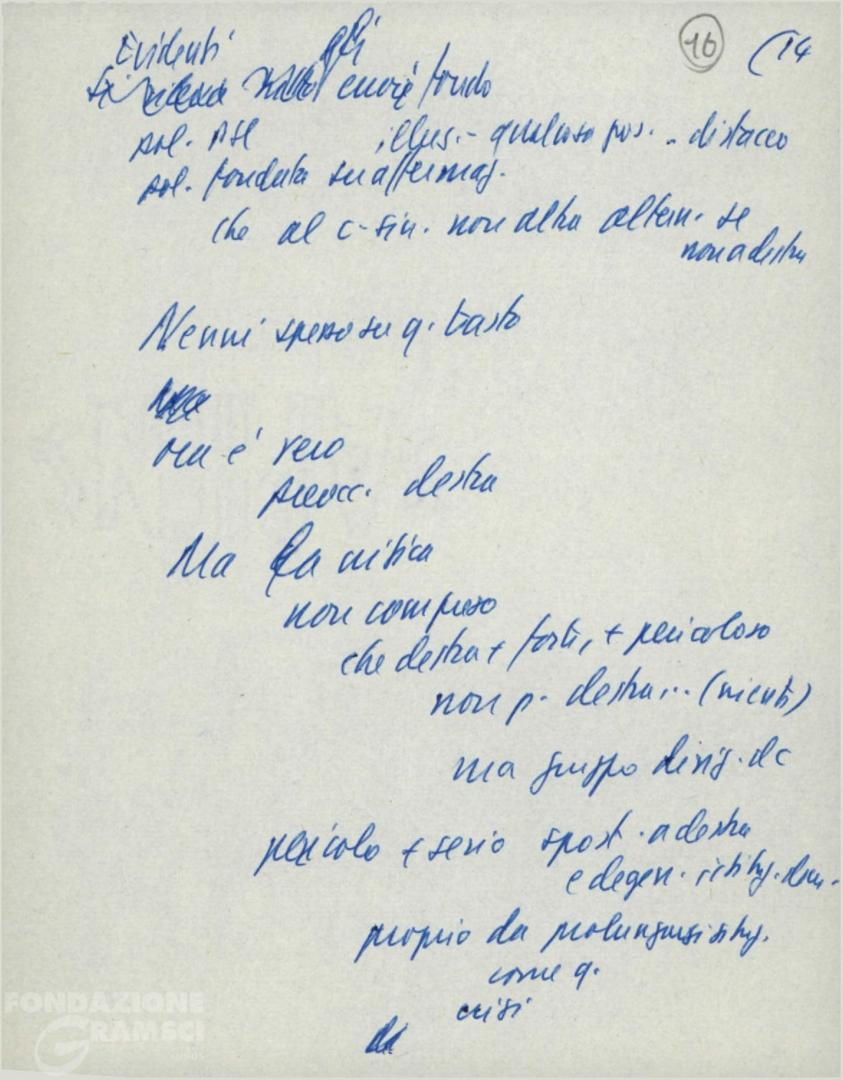 16 (14
Evidenti gli
errori fondo
sol. PSI illus. - qualcosa pos. - distacco
sol. fondata su affermaz.
che al c-sin. non altra altern. se
non a destra
Nenni spesso su q. tasto
ora è vero
preocc. destra
Ma la critica
non compreso
che destra + forte, + pericolosa
non p. destra... (niente)
ma gruppo dirig. dc
pericolo + serio spost. a destra
e degen. istituz. dem.
proprio da prolungarsi situaz.
come q.
crisi
FONDAZIONE
GRAMSCI